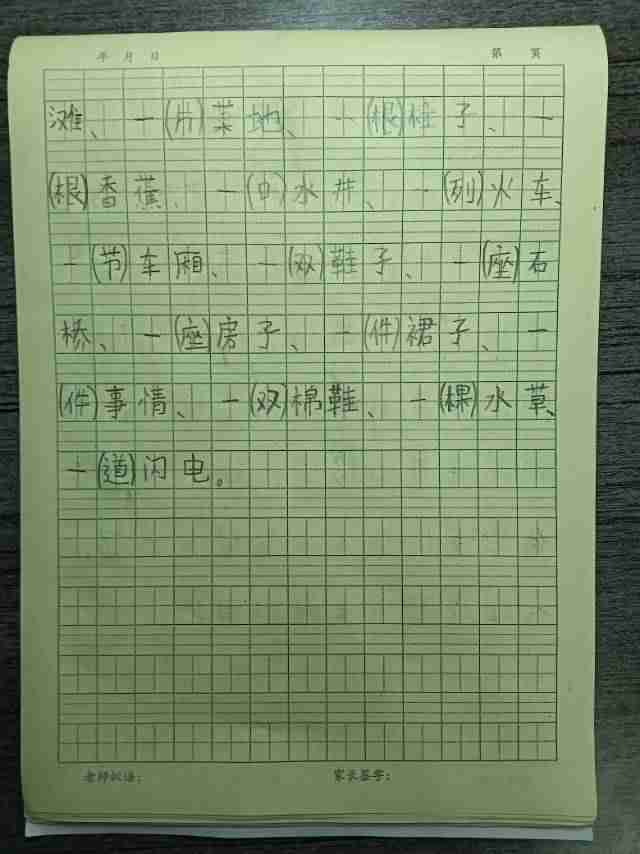 年 月 日 第 页
滩、一(片)菜地、一(根)棰子、一
(根)香蕉、一(口)水井、一(列)火车、
一(节)车厢、一(双)鞋子、一(座)石
桥、一(座)房子、一(件)裙子、一
(件)事情、一(双)棉鞋、一(棵)水草、
一(道)闪电。
老师评语: 家长签字: